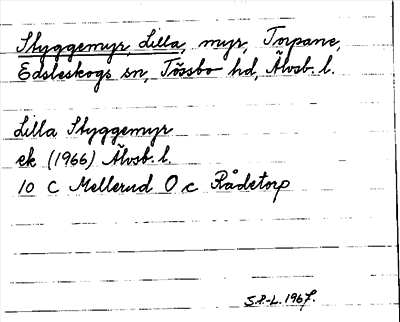 Styggemyr, Lilla, myr, Torpane,
Edsleskogs sn, Tössbo hd, Älvsb. l.
Lilla Styggemyr
ek (1966) Älvsb. l.
10 C Mellerud O c Rådetorp
S.P-L. 1967.